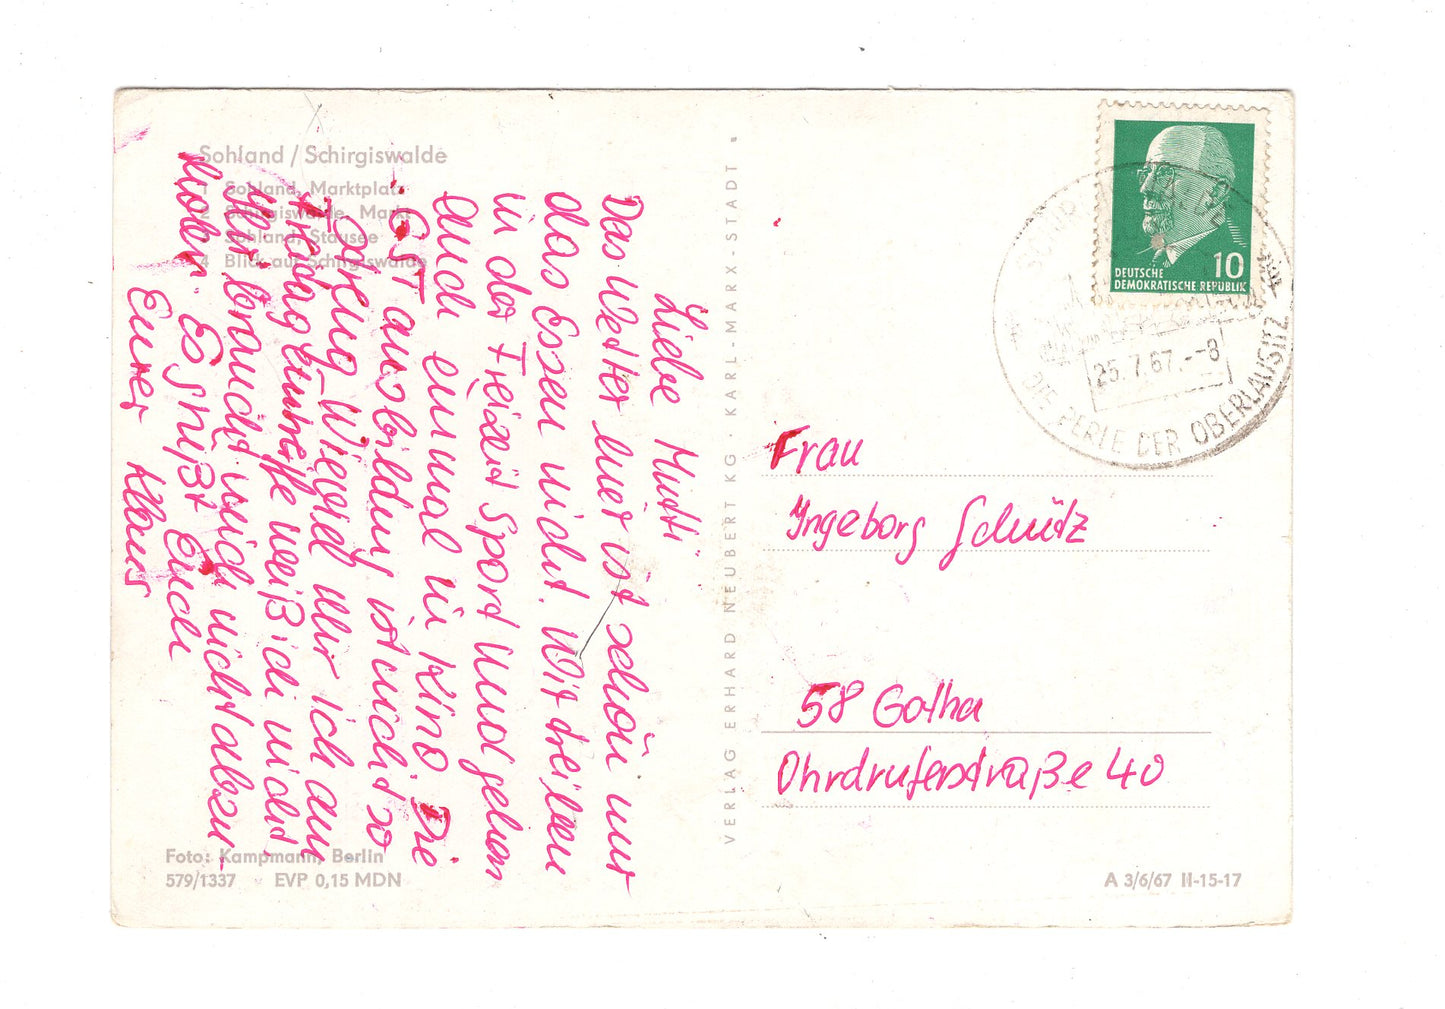 Sohland / Schirgiswalde
1 Sohland, Marktplatz
2 Schirgiswalde, Markt
3 Sohland, Stausee
4 Blick auf Schirgiswalde
Liebe Mutti
Das Wetter hier ist schön nur
das Essen nicht. Wir treiben
in der Freizeit Sport und gehen
auch einmal in Kino. Die
GST ausbildung ist nicht so
Wieviel Uhr ich am
weiß ich nicht,
Ihr braucht mich nicht abzu-
holen. Es grüßt Euch
Euer Klaus
Foto: Kampmann, Berlin
579/1337 EVP 0,15 MDN
VERLAG ERHARD NEUBERT KG · KARL-MARX-STADT
DEUTSCHE
DEMOKRATISCHE REPUBLIK
10
25.7.67.--8
DIE PERLE DER OBERLAUSITZ
Frau
Ingeborg Schütz
58 Gotha
Ohrdruferstraße 40
A 3/6/67 II-15-17